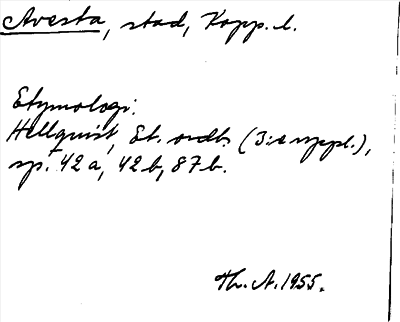 Avesta, stad, Kopp. l.
Etymologi:
Hellquist, Et. ordb. (3:e uppl.),
sp. 42 a, 42 b, 87 b.
Th. A. 1955.